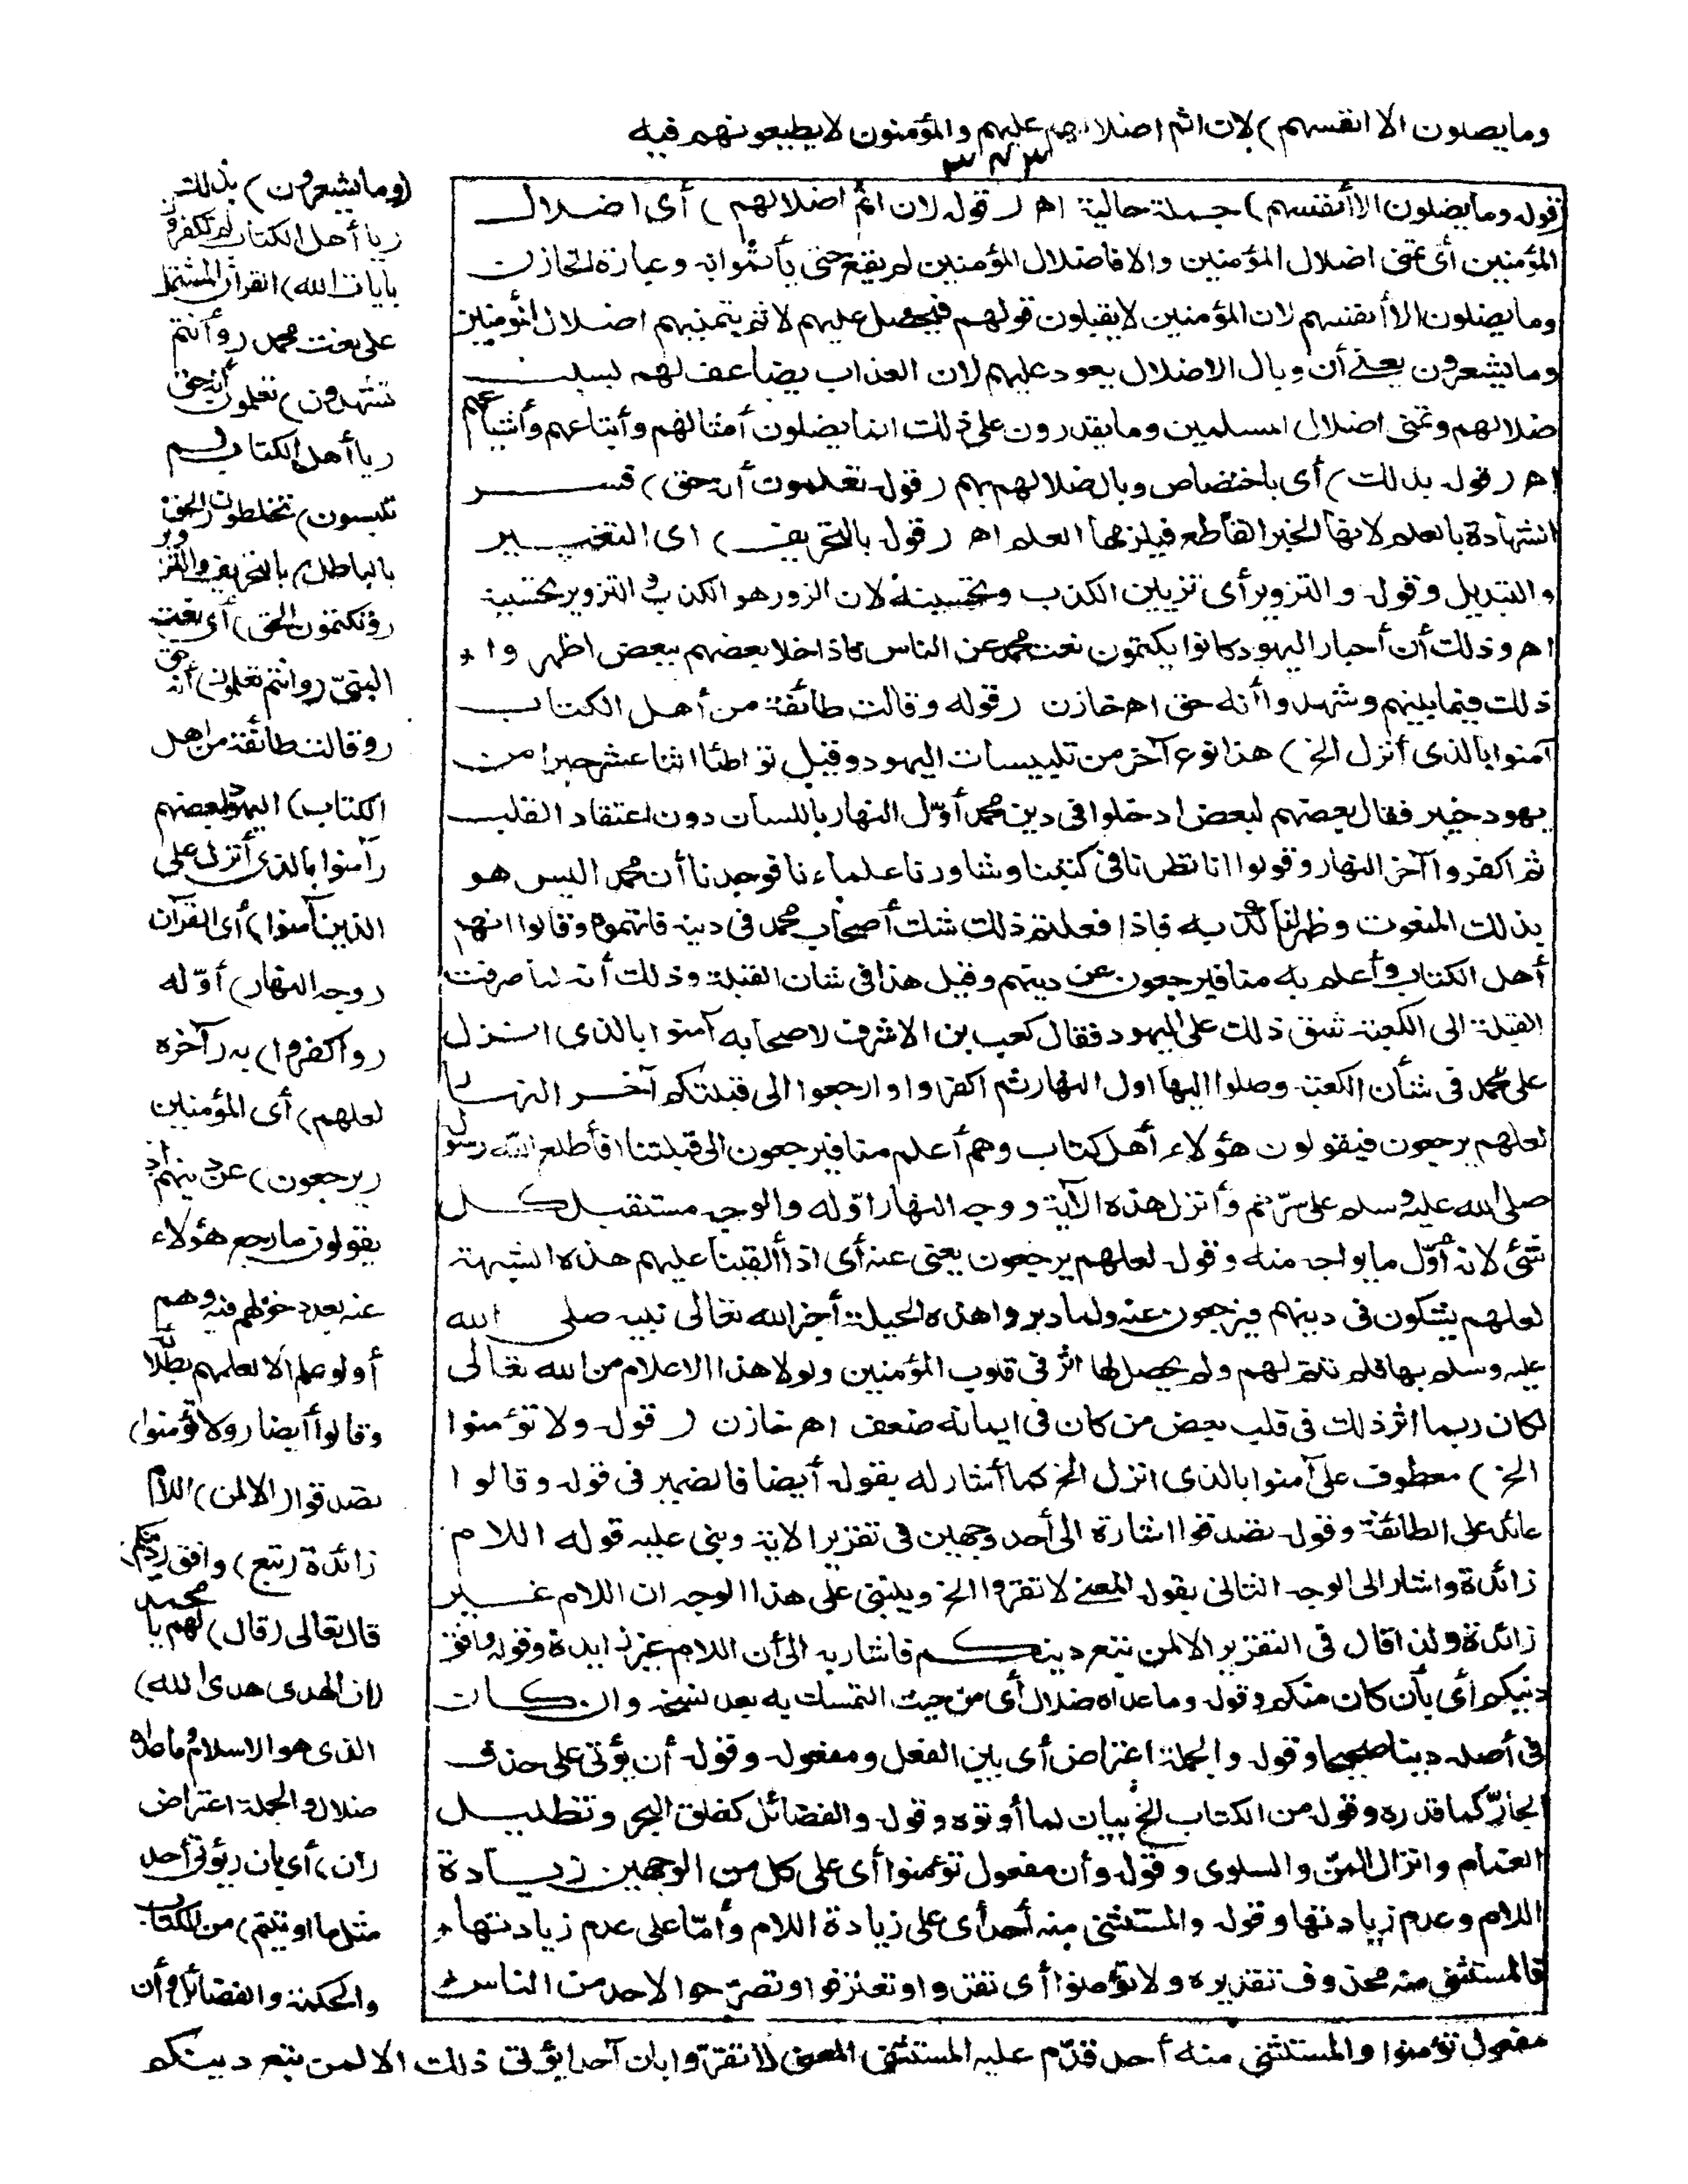 وما يضلون الا انفسهم) لان اثم اضلالهم عليهم والمؤمنون لا يطيعونهم فيه
٣٤٣
(قوله وما يضلون الا أنفسهم) جملة حالية اهـ (قوله لان اثم اضلالهم) أى اضلال
المؤمنين أى تمنى اضلال المؤمنين والا فاضلال المؤمنين لم يقع حتى يأثموا به وعبارة الخازن
وما يضلون الا أنفسهم لان المؤمنين لا يقبلون قولهم فيحصل عليهم الاثم بتمنيهم اضلال المؤمنين
وما يشعرون يعنى أن وبال الاضلال يعود عليهم لان العذاب يضاعف لهم بسبب
ضلالهم وتمنى اضلال المسلمين وما يقدرون على ذلك انما يضلون أمثالهم وأتباعهم وأشياعهم
اهـ (قوله بذلك) أى باختصاص وبال ضلالهم بهم (قوله تعلمون أنه حق) فسر
الشهادة بالعلم لانها الخبر القاطع فيلزمها العلم اهـ (قوله بالتحريف) اى التغيير
والتبديل وقوله والتزوير أى تزيين الكذب وتحسينه لان الزور هو الكذب والتزوير تحسينه
اهـ وذلك أن أحبار اليهود كانوا يكتمون نعت محمد عن الناس فاذا خلا بعضهم ببعض اظهروا
ذلك فيما بينهم وشهدوا أنه حق اهـ خازن (قوله وقالت طائفة من أهل الكتاب
آمنوا بالذى أنزل الخ) هذا نوع آخر من تلبيسات اليهود وقيل تواطئا اثنا عشر حبرا من
يهود خيبر فقال بعضهم لبعض ادخلوا فى دين محمد أول النهار باللسان دون اعتقاد القلب
ثم اكفروا آخر النهار وقولوا انا نظرنا فى كتبنا وشاورنا علماءنا فوجدنا أن محمد اليس هو
بذلك المنعوت وظهر لنا كذبه فاذا فعلتم ذلك شك أصحاب محمد فى دينه فاتهموه وقالوا انهم
أهل الكتاب وأعلم به منا فيرجعون عن دينهم وقيل هذا فى شان القبلة وذلك أنه لما صرفت
القبلة الى الكعبة شق ذلك على اليهود فقال كعب بن الاشرف لاصحابه آمنوا بالذى انزل
على محمد فى شأن الكعبة وصلوا اليها اول النهار ثم اكفروا وارجعوا الى قبلتكم آخر النهار
لعلهم يرجعون فيقولون هؤلاء أهل كتاب وهم أعلم منا فيرجعون الى قبلتنا فأطلع الله رسوله
صلى الله عليه وسلم على سرهم وأنزل هذه الآية ووجه النهار اوله والوجه مستقبل كل
شئ لانه أول ما يواجه منه وقوله لعلهم يرجعون يعنى عنه أى اذا ألقينا عليهم هذه الشبهة
لعلهم يشكون فى دينهم فيرجعون عنه ولما دبروا هذه الحيلة أخبر الله تعالى نبيه صلى الله
عليه وسلم بها فلم تتم لهم ولم يحصل لها اثر فى قلوب المؤمنين ولولا هذا الاعلام من الله تعالى
لكان ربما اثر ذلك فى قلب بعض من كان فى ايمانه ضعف اهـ خازن (قوله ولا تؤمنوا
الخ) معطوف على آمنوا بالذى انزل الخ كما أشار له بقوله أيضا فالضمير فى قوله وقالوا
عائد على الطائفة وقوله تصدقوا اشارة الى أحد وجهين فى تقرير الاية وبنى عليه قوله اللام
زائدة واشار الى الوجه الثانى بقوله المعنى لا تقروا الخ وينبنى على هذا الوجه ان اللام غير
زائدة ولذا قال فى التقرير الا لمن تبع دينكم فاشار به الى أن اللام غير زايدة وقوله وافق
دينكم أى بأن كان منكم وقوله وما عداه ضلال أى من حيث التمسك به بعد نسخه وان كان
فى أصله دينا صحيحا وقوله والجملة اعتراض أى بين الفعل ومفعوله وقوله أن يؤتى على حذف
الجار كما قدره وقوله من الكتاب الخ بيان لما أوتوه وقوله والفضائل كفلق البحر وتظليل
الغمام وانزال المن والسلوى وقوله وأن مفعول تؤمنوا أى على كل من الوجهين زيادة
اللام وعدم زيادتها وقوله والمستثنى منه أحد أى على زيادة اللام وأما على عدم زيادتها
فالمستثنى منه محذوف تقديره ولا تؤمنوا أى تقروا وتعترفوا وتصرحوا لاحد من الناس
(وما يشعرون) بذلك
(يا أهل الكتاب لم تكفرون
بايات الله) القرآن المشتمل
على نعت محمد (وأنتم
تشهدون) تعلمون أنه حق
(يا أهل الكتاب لم
تلبسون) تخلطون (الحق
بالباطل) بالتحريف والتزوير
(وتكتمون الحق) أى نعت
النبى (وانتم تعلمون) أنه حق
(وقالت طائفة من اهل
الكتاب) اليهود لبعضهم
(آمنوا بالذى أنزل على
الذين آمنوا) أى القرآن
(وجه النهار) أوله
(واكفروا) به (آخره
لعلهم) أى المؤمنين
(يرجعون) عن دينهم اذ
يقولون ما رجع هؤلاء
عنه بعد دخولهم فيه وهم
أولو علم الا لعلمهم بطلانه
وقالوا أيضا (ولا تؤمنوا)
تصدقوا (الا لمن) اللام
زائدة (تبع) وافق (دينكم)
قال تعالى (قل) لهم يا محمد
(ان الهدى هدى الله)
الذى هو الاسلام وما عداه
ضلال والجملة اعتراض
(أن) أى بان (يؤتى أحد
مثل ما اوتيتم) من الكتاب
والحكمة والفضائل وأن
مفعول تؤمنوا والمستثنى منه أحد قدم عليه المستثنى المعنى لا تقروا بان أحدا يؤتى ذلك الا لمن تبع دينكم